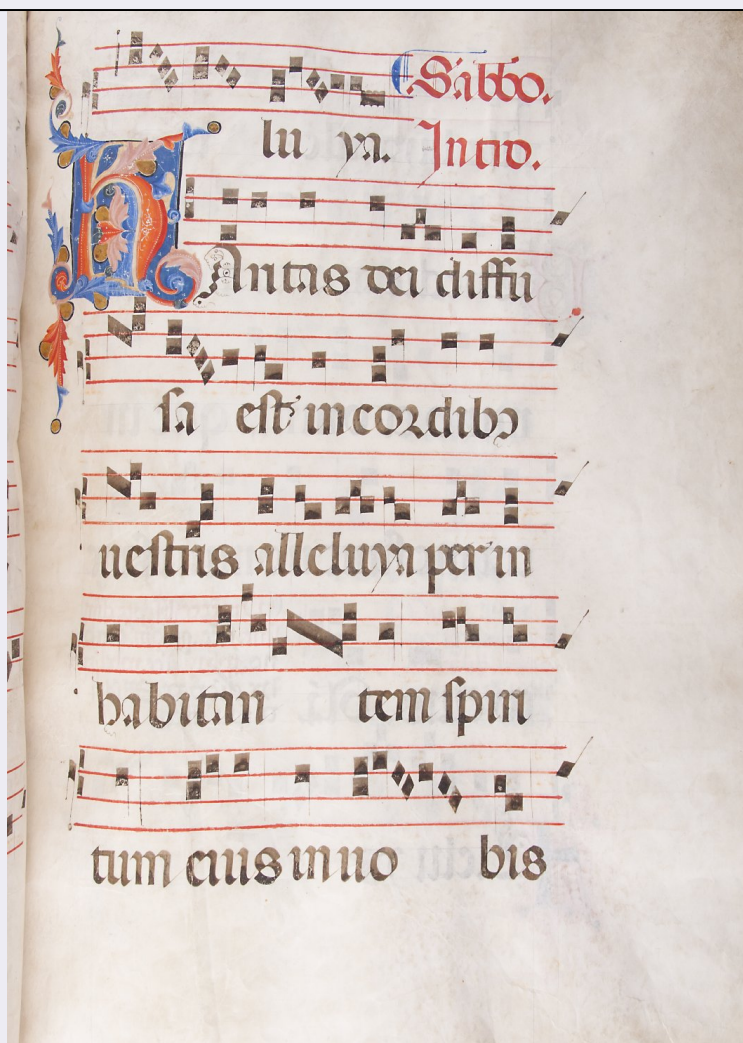 lu ya. Sabbo.
Intro.
KAritas dei diffu
sa est in cordibꝯ
uestris alleluya per in
habitan tem spiri
tum eius in uo bis